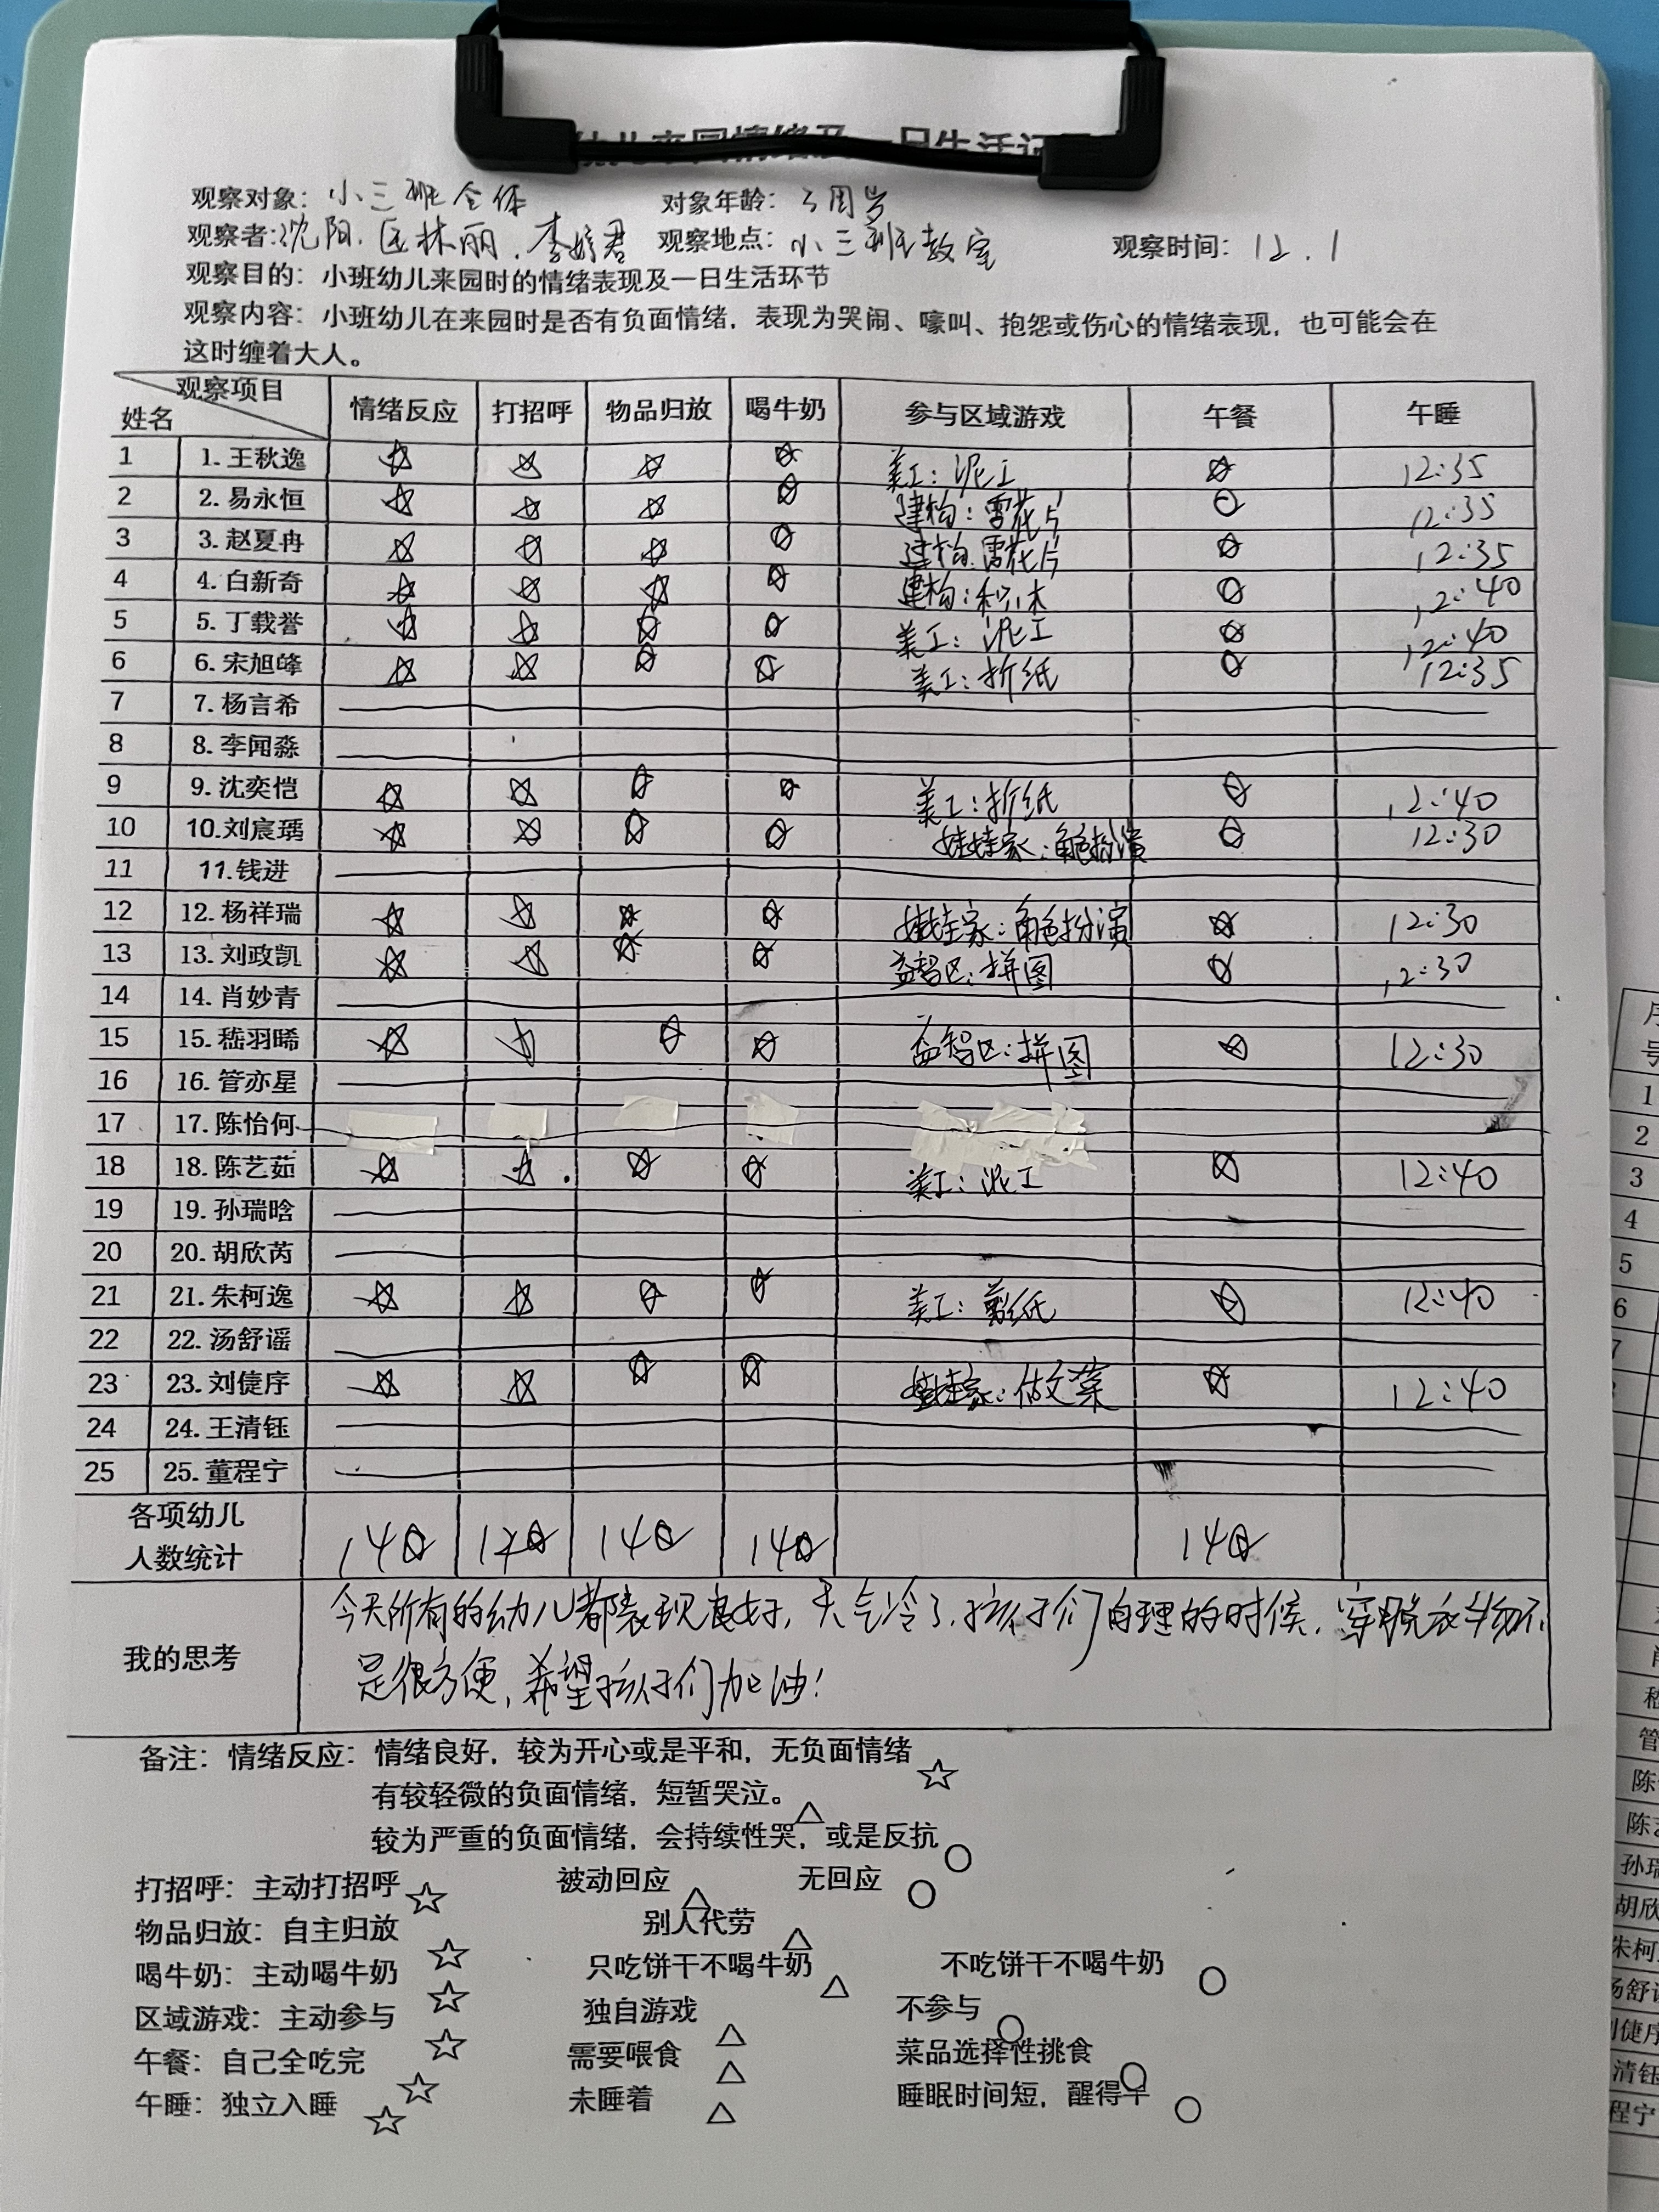 幼儿来园情绪及一日生活记
观察对象：小三班全体 对象年龄：3周岁
观察者：沈阳、区林丽、李婷君 观察地点：小三班教室 观察时间：12.1
观察目的：小班幼儿来园时的情绪表现及一日生活环节
观察内容：小班幼儿在来园时是否有负面情绪，表现为哭闹、嚎叫、抱怨或伤心的情绪表现，也可能会在
这时缠着大人。
观察项目 姓名 情绪反应 打招呼 物品归放 喝牛奶 参与区域游戏 午餐 午睡
1 1.王秋逸 ☆ ☆ ☆ ☆ 美工：泥工 ☆ 12:35
2 2.易永恒 ☆ ☆ ☆ ☆ 建构：雪花片 ○ 12:35
3 3.赵夏冉 ☆ ☆ ☆ ☆ 建构：雪花片 ☆ 12:35
4 4.白新奇 ☆ ☆ ☆ ☆ 建构：积木 ☆ 12:40
5 5.丁载誉 ☆ ☆ ☆ ☆ 美工：泥工 ☆ 12:40
6 6.宋旭峰 ☆ ☆ ☆ ☆ 美工：折纸 ☆ 12:35
7 7.杨言希
8 8.李闻淼
9 9.沈奕恺 ☆ ☆ ☆ ☆ 美工：折纸 ☆ 12:40
10 10.刘宸瑀 ☆ ☆ ☆ ☆ 娃娃家：角色扮演 ☆ 12:30
11 11.钱进
12 12.杨祥瑞 ☆ ☆ ☆ ☆ 娃娃家：角色扮演 ☆ 12:30
13 13.刘政凯 ☆ ☆ ☆ ☆ 益智区：拼图 ☆ 12:30
14 14.肖妙青
15 15.嵇羽晞 ☆ ☆ ☆ ☆ 益智区：拼图 ☆ 12:30
16 16.管亦星
17 17.陈怡何
18 18.陈艺茹 ☆ ☆ ☆ ☆ 美工：泥工 ☆ 12:40
19 19.孙瑞晗
20 20.胡欣芮
21 21.朱柯逸 ☆ ☆ ☆ ☆ 美工：剪纸 ☆ 12:40
22 22.汤舒谣
23 23.刘倢序 ☆ ☆ ☆ ☆ 娃娃家：做饭菜 ☆ 12:40
24 24.王清钰
25 25.董程宁
各项幼儿
人数统计 14☆ 14☆ 14☆ 14☆ 14☆
我的思考
今天所有的幼儿都表现良好，天气冷了，孩子们自理的时候，穿脱衣物不
是很方便，希望孩子们加油！
备注：情绪反应：情绪良好，较为开心或是平和，无负面情绪☆
有较轻微的负面情绪，短暂哭泣。△
较为严重的负面情绪，会持续性哭，或是反抗○
打招呼：主动打招呼☆ 被动回应△ 无回应○
物品归放：自主归放☆ 别人代劳△
喝牛奶：主动喝牛奶☆ 只吃饼干不喝牛奶△ 不吃饼干不喝牛奶○
区域游戏：主动参与☆ 独自游戏△ 不参与○
午餐：自己全吃完☆ 需要喂食△ 菜品选择性挑食○
午睡：独立入睡☆ 未睡着△ 睡眠时间短，醒得早○
序
号
1
2
3
4
5
6
7